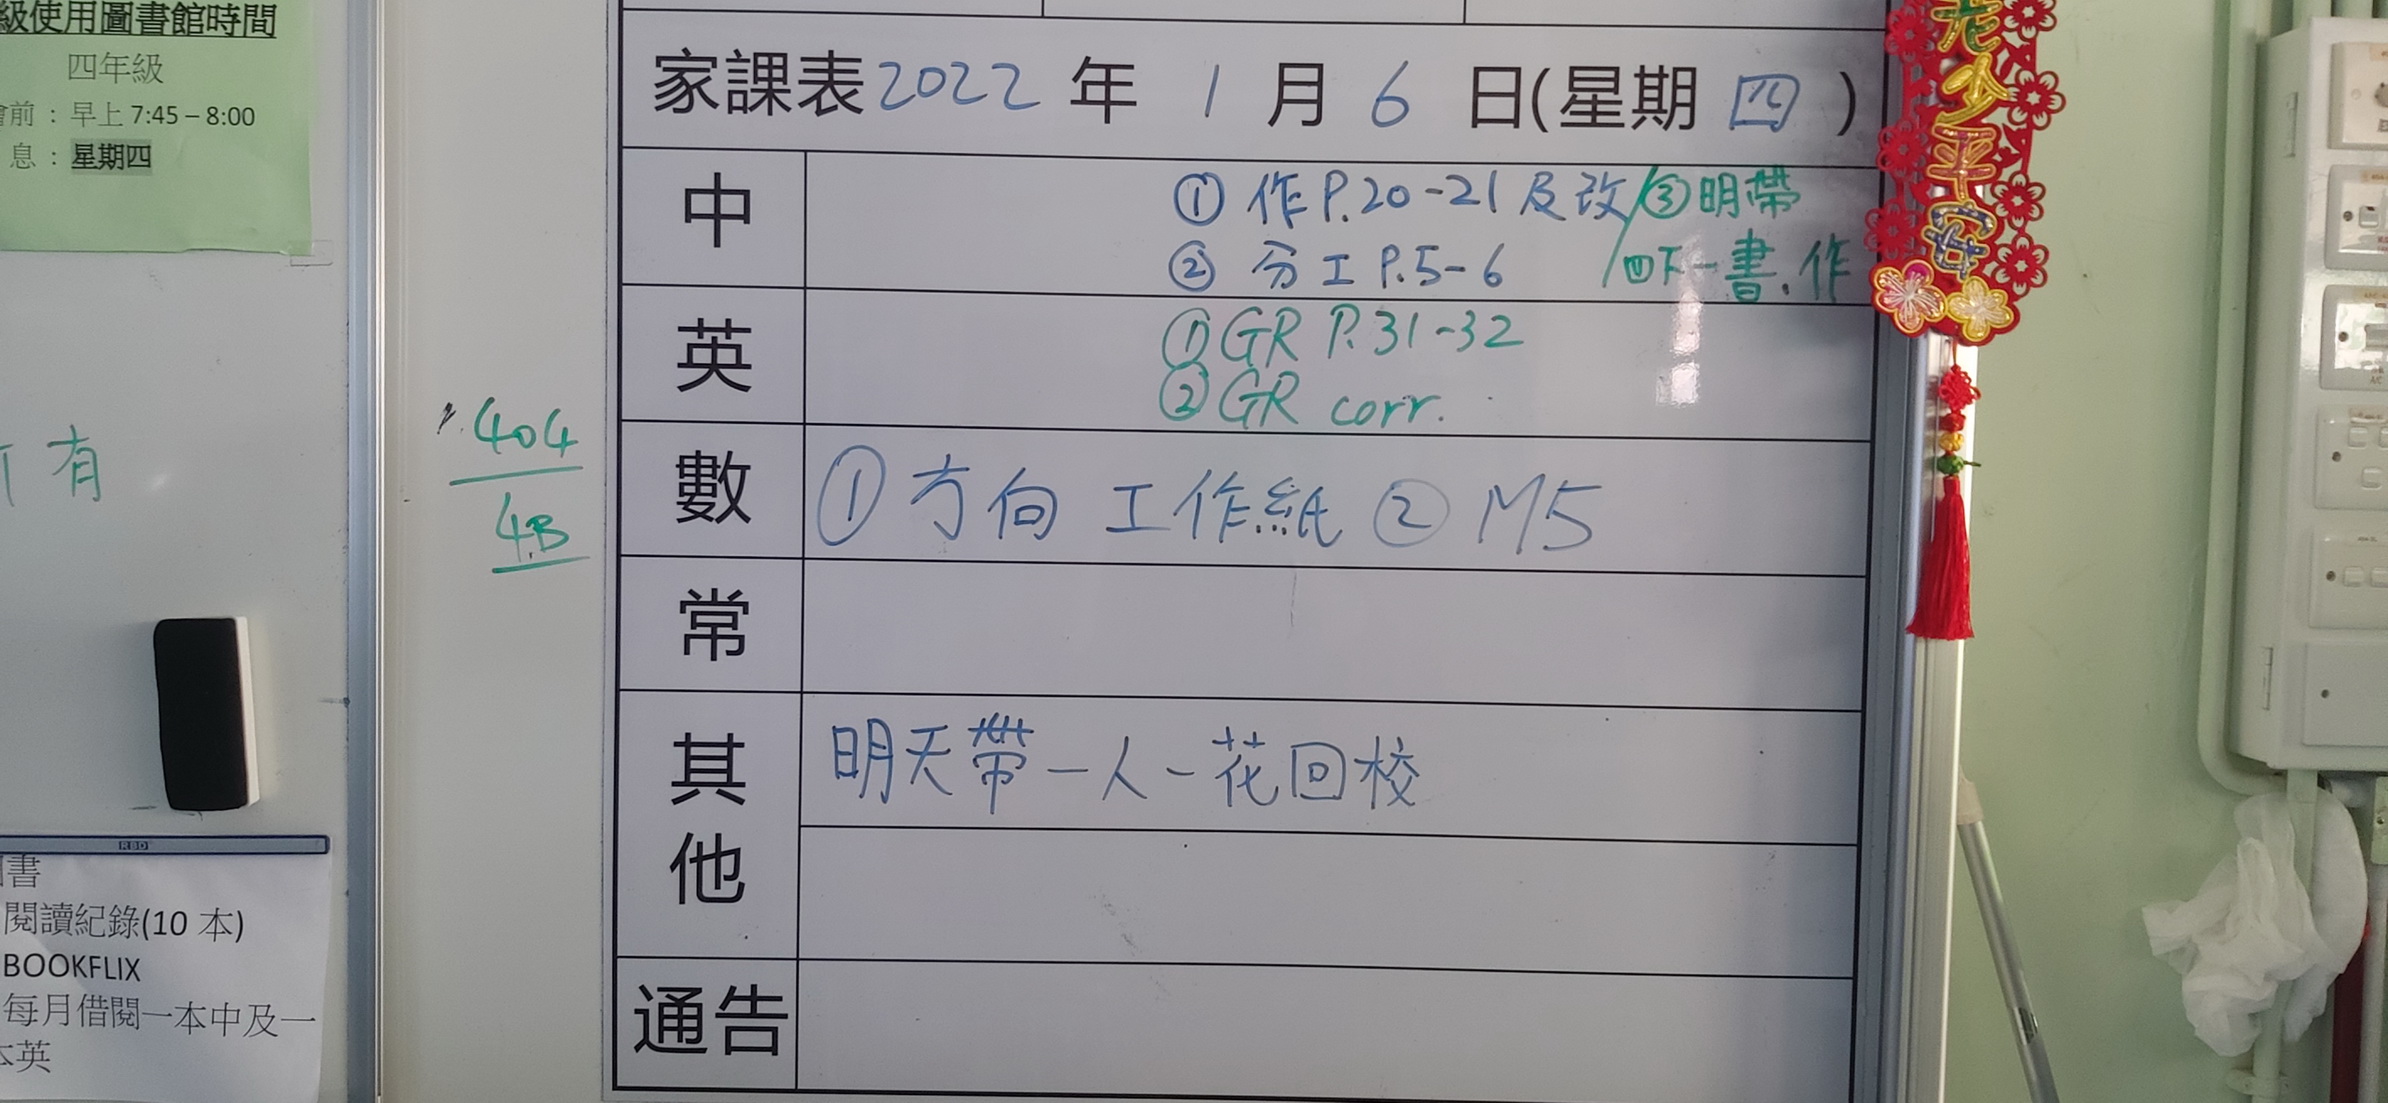 級使用圖書館時間
四年級
會前：早上 7:45 – 8:00
息：星期四
有
404
4B
RBD
書
閱讀紀錄(10 本)
BOOKFLIX
每月借閱一本中及一
本英
家課表2022 年 1 月 6 日(星期 四 )
中
① 作 P.20-21 及改/③明帶
② 分工 P.5-6 /四下一書.作
英
① GR P.31-32
② GR corr.
數
① 方向 工作紙 ② M5
常
其他
明天帶一人一花回校
通告
老少平安